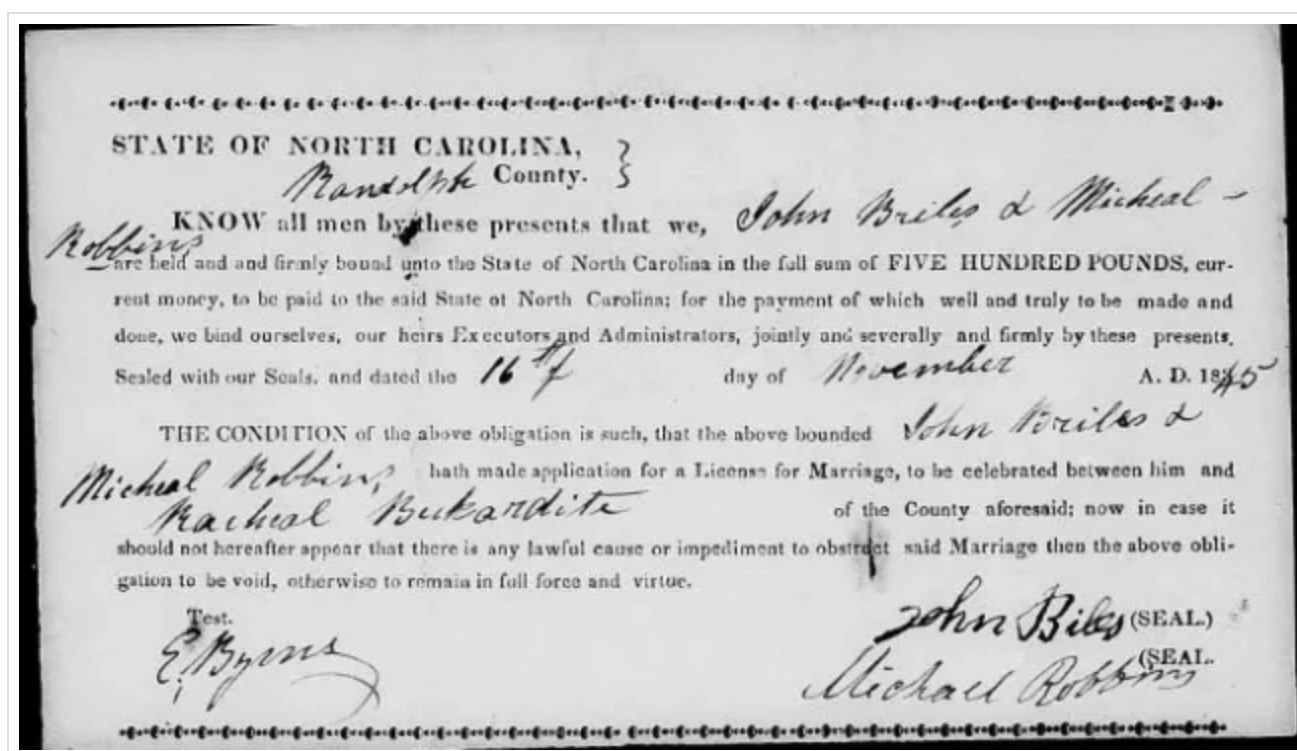 STATE OF NORTH CAROLINA,
Randolph County.
KNOW all men by these presents that we, John Briles & Micheal
Robbins
are held and and firmly bound unto the State of North Carolina in the full sum of FIVE HUNDRED POUNDS, cur-
rent money, to be paid to the said State of North Carolina; for the payment of which well and truly to be made and
done, we bind ourselves, our heirs Executors and Administrators, jointly and severally and firmly by these presents.
Sealed with our Seals, and dated the 16th day of November A. D. 1845
THE CONDITION of the above obligation is such, that the above bounded John Briles &
Micheal Robbins hath made application for a License for Marriage, to be celebrated between him and
Racheal Bukardite of the County aforesaid; now in case it
should not hereafter appear that there is any lawful cause or impediment to obstruct said Marriage then the above obli-
gation to be void, otherwise to remain in full force and virtue.
Test.
E. Byrns
John Biles (SEAL.)
Michael Robbins (SEAL.